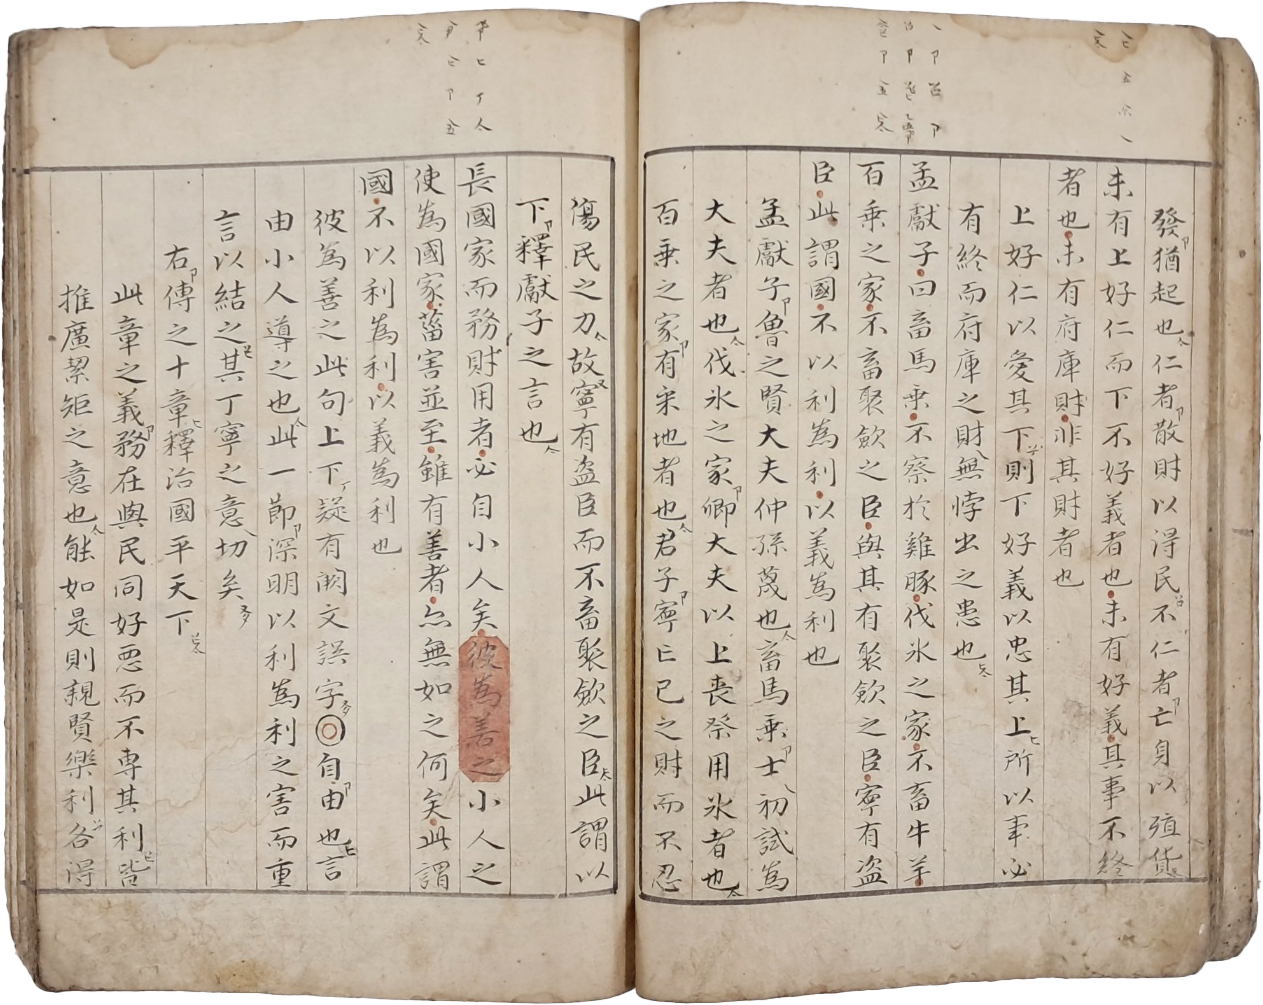 發猶起也仁者散財以得民不仁者亡身以殖貨
未有上好仁而下不好義者也未有好義其事不終
者也未有府庫財非其財者也
上好仁以愛其下則下好義以忠其上所以事必
有終而府庫之財無悖出之患也
孟獻子曰畜馬乘不察於雞豚伐氷之家不畜牛羊
百乘之家不畜聚斂之臣與其有聚斂之臣寧有盜
臣此謂國不以利為利以義為利也
孟獻子魯之賢大夫仲孫蔑也畜馬乘士初試為
大夫者也伐氷之家卿大夫以上喪祭用氷者也
百乘之家有采地者也君子寧亡己之財而不忍
傷民之力故寧有盜臣而不畜聚斂之臣此謂以
下釋獻子之言也
長國家而務財用者必自小人矣彼為善之小人之
使為國家菑害並至雖有善者亦無如之何矣此謂
國不以利為利以義為利也
彼為善之此句上下疑有闕文誤字◎自由也言
由小人導之也此一節深明以利為利之害而重
言以結之其丁寧之意切矣
右傳之十章釋治國平天下
此章之義務在與民同好惡而不專其利皆
推廣絜矩之意也能如是則親賢樂利各得